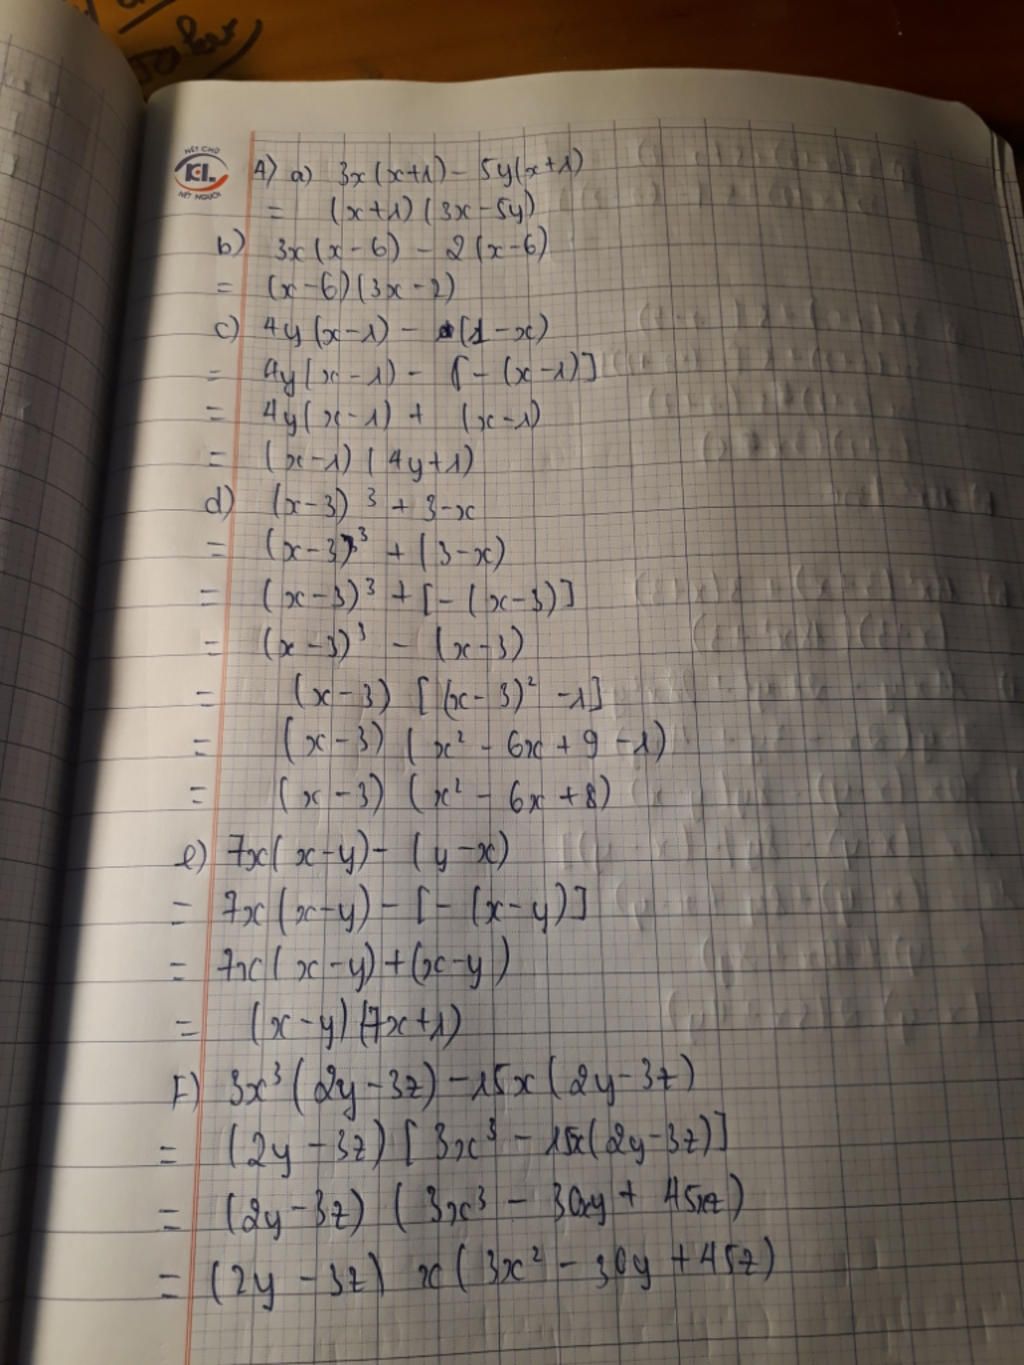 NÉT CHỮ
KEL
NÉT NGƯỜI
A) a) 3x(x+1) - 5y(x+1)
= (x+1)(3x-5y)
b) 3x(x-6) - 2(x-6)
= (x-6)(3x-2)
c) 4y(x-1) - (1-x)
= 4y(x-1) - [-(x-1)]
= 4y(x-1) + (x-1)
= (x-1)(4y+1)
d) (x-3)³ + 3-x
= (x-3)³ + (3-x)
= (x-3)³ + [-(x-3)]
= (x-3)³ - (x-3)
= (x-3) [(x-3)² - 1]
= (x-3) (x² - 6x + 9 - 1)
= (x-3) (x² - 6x + 8)
e) 7x(x-y) - (y-x)
= 7x(x-y) - [-(x-y)]
= 7x(x-y) + (x-y)
= (x-y)(7x+1)
F) 3x³(2y-3z) - 15x(2y-3z)
= (2y-3z) [3x³ - 15x(2y-3z)]
= (2y-3z) (3x³ - 30xy + 45xz)
= (2y-3z) x(3x² - 30y + 45z)